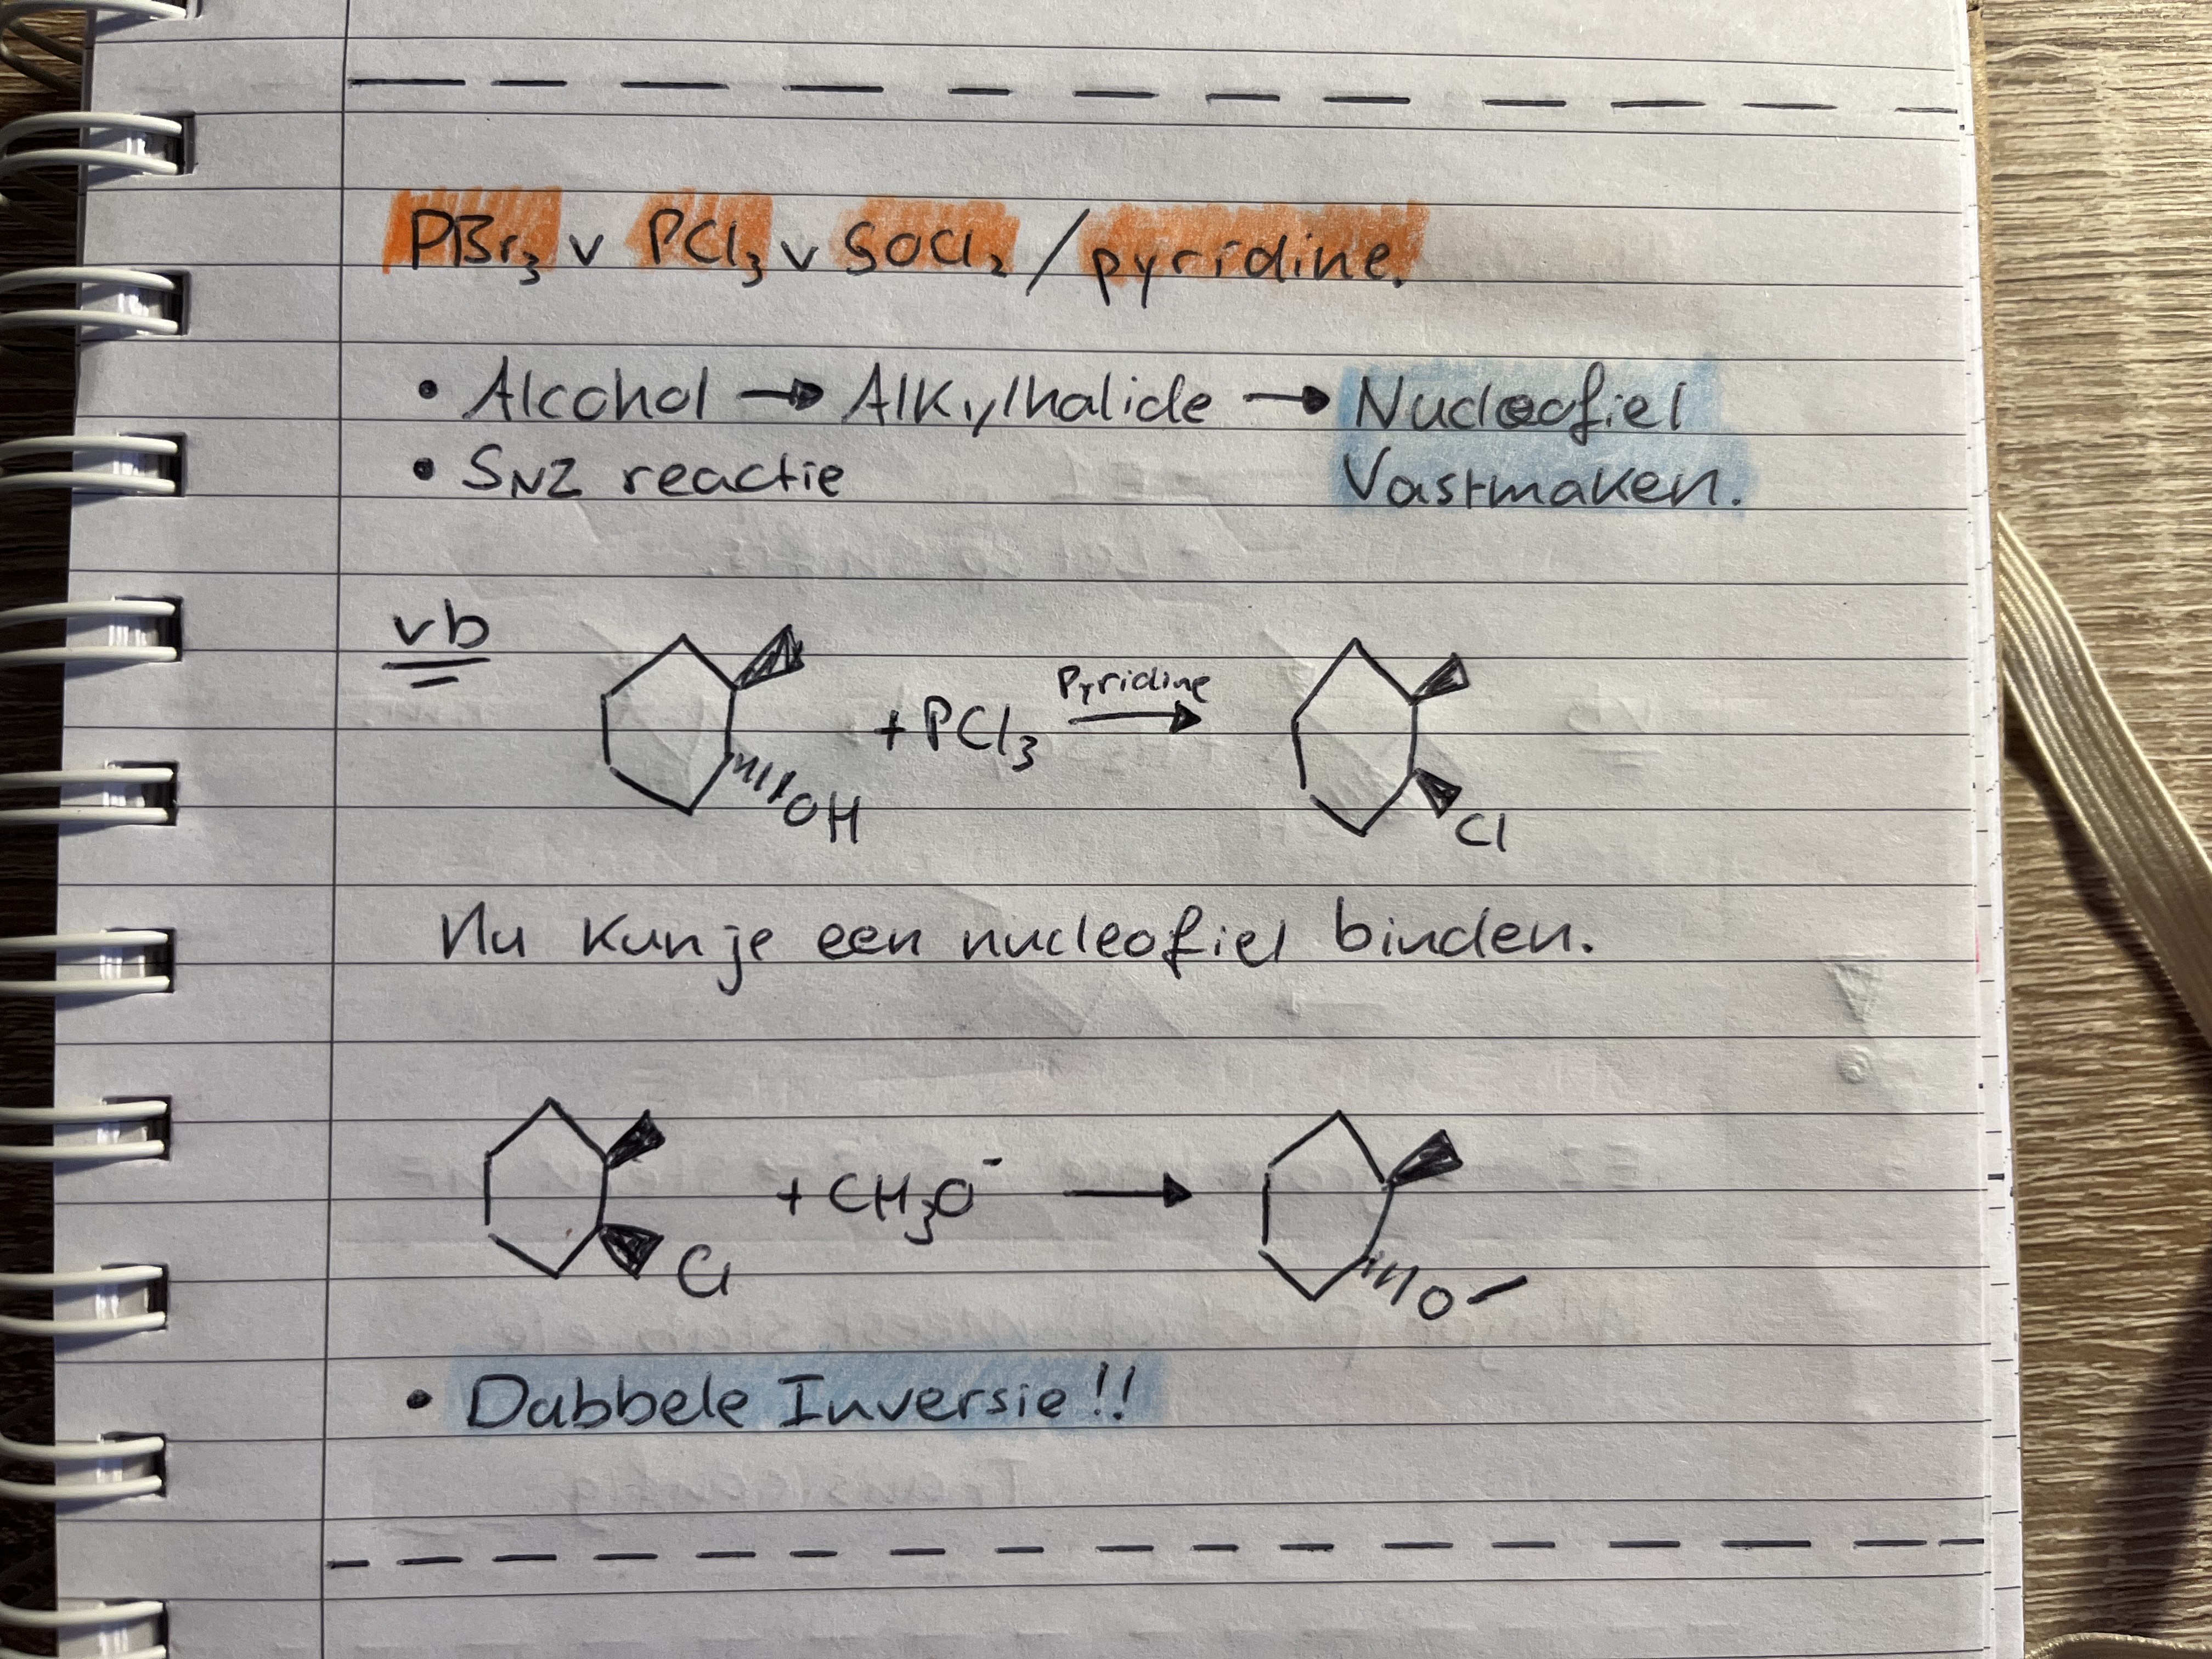 PBr₃ v PCl₃ v SOCl₂ / pyridine.
• Alcohol → Alkylhalide → Nucleofiel
• SN2 reactie Vastmaken.
vb
OH + PCl₃ Pyridine → Cl
Nu kun je een nucleofiel binden.
Cl + CH₃O⁻ → O
• Dubbele Inversie!!